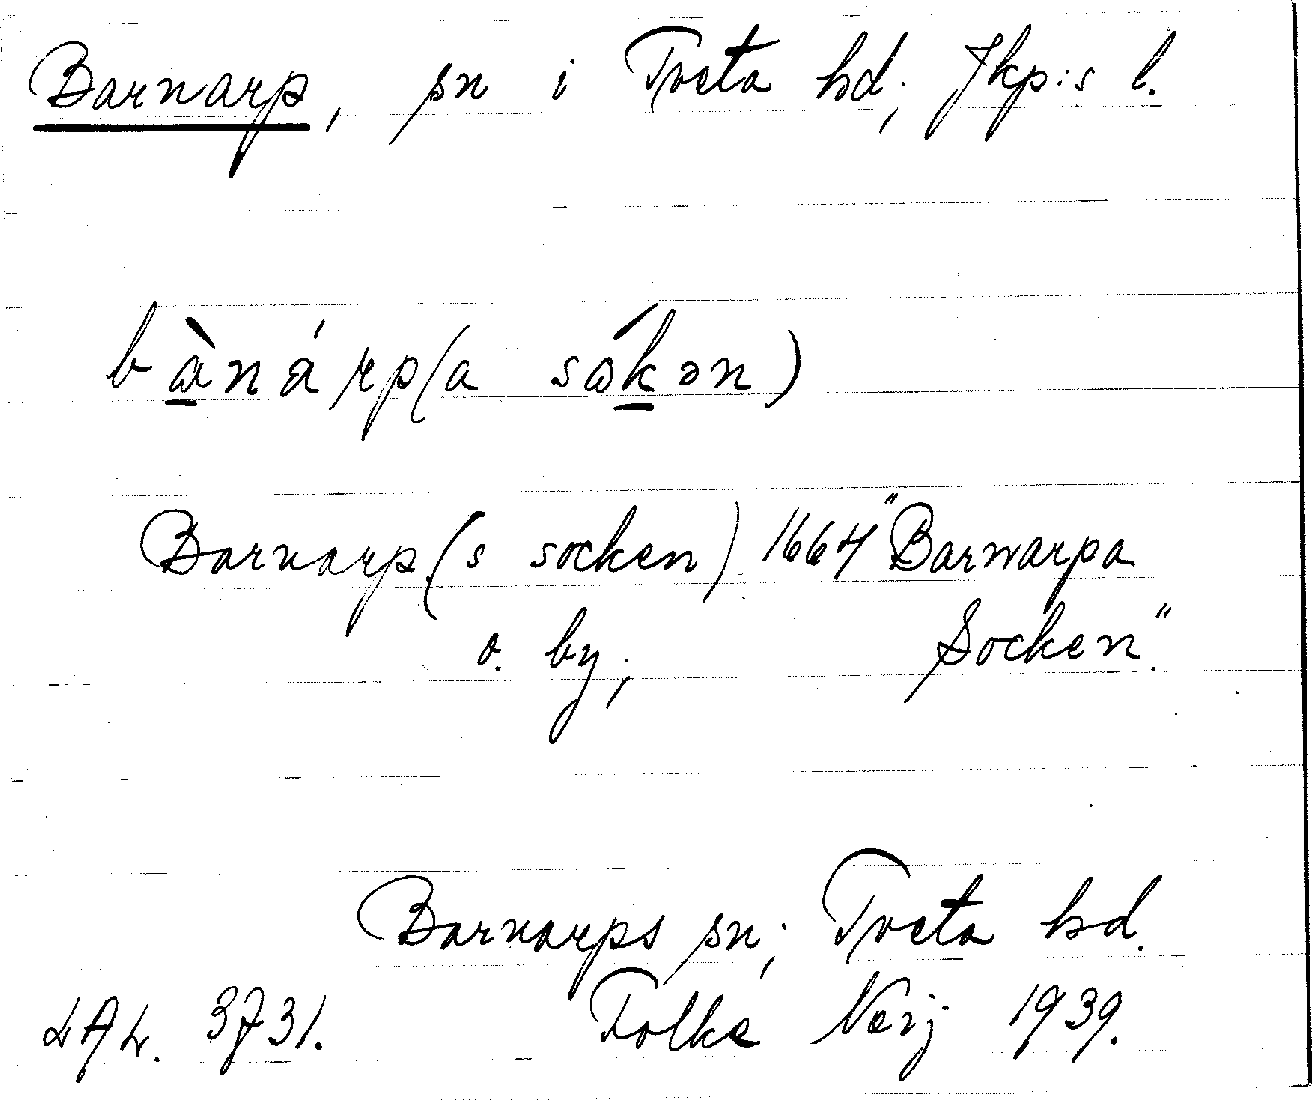 Barnarp, sn i Tveta hd; Jkp:s l.
bànárp(a sókən)
Barnarp(s socken) 1664 "Barnarpa
o. by; Socken".
Barnarps sn; Tveta hd.
LAL. 3731. Folke Neij 1939.